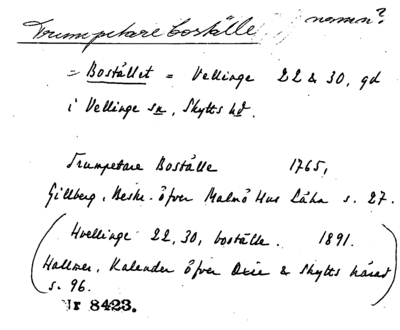 Trumpetare boställe namn?
= Bostället = Vellinge 22 & 30, gd
i Vellinge sn, Skytts hd.
Trumpetare Boställe 1765,
Gillberg, Beskr. öfver Malmö Hus Lähn s. 27.
(Hvellinge 22, 30, boställe. 1891.
Hallner, Kalender öfver Oxie & Skytts härad
s. 96.)
Nr 8423.